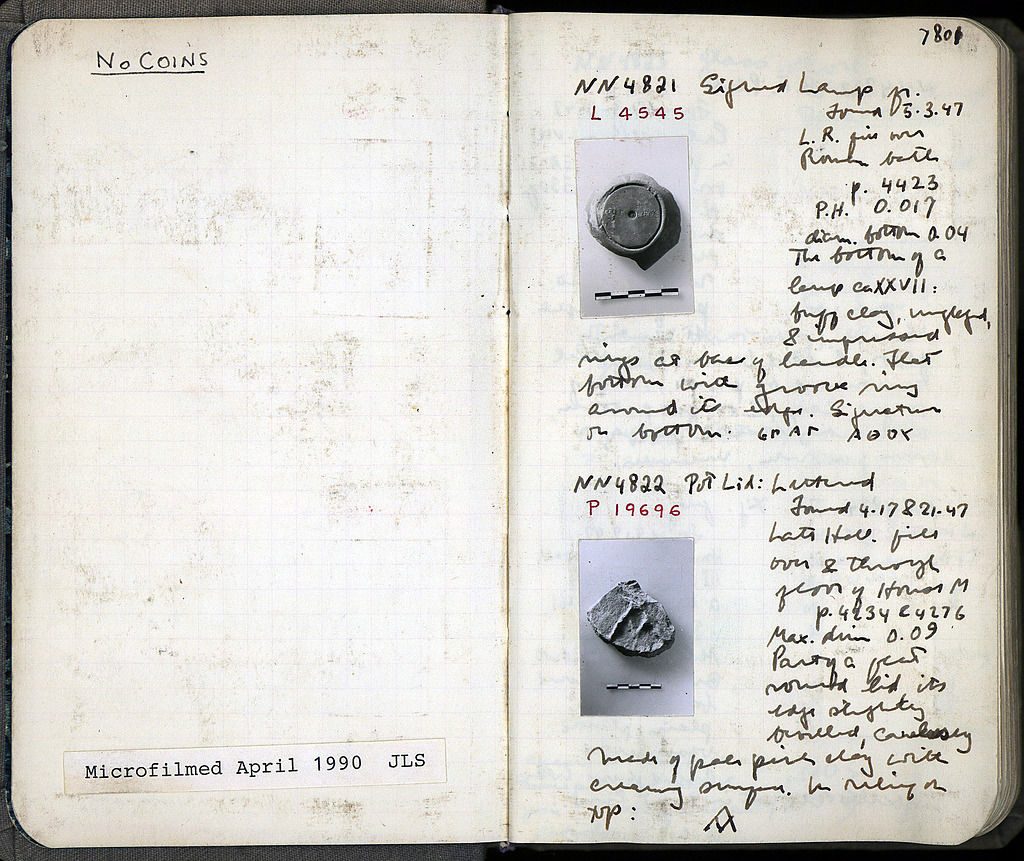 No COINS
Microfilmed April 1990 JLS
7801
NN4821 Signed Lamp fr.
L 4545
Found 5.3.47
L.R. fill over
Roman bath
p. 4423
P.H. 0.017
diam. bottom 0.04
The bottom of a
lamp ca XXVII:
buff clay, unglazed,
& impressed
rings at base of handle. Flat
bottom with groove ring
around its edge. Signature
on bottom:
NN4822 Pot Lid: Lettered
P 19696
Found 4.17 & 21.47
Late Hell. fill
over & through
floor of House M
p. 4234 & 4276
Max. dim 0.09
Part of a flat
round lid, its
edge slightly
bevelled, carelessly
made of pale pink clay with
creamy surface. In relief on
top: